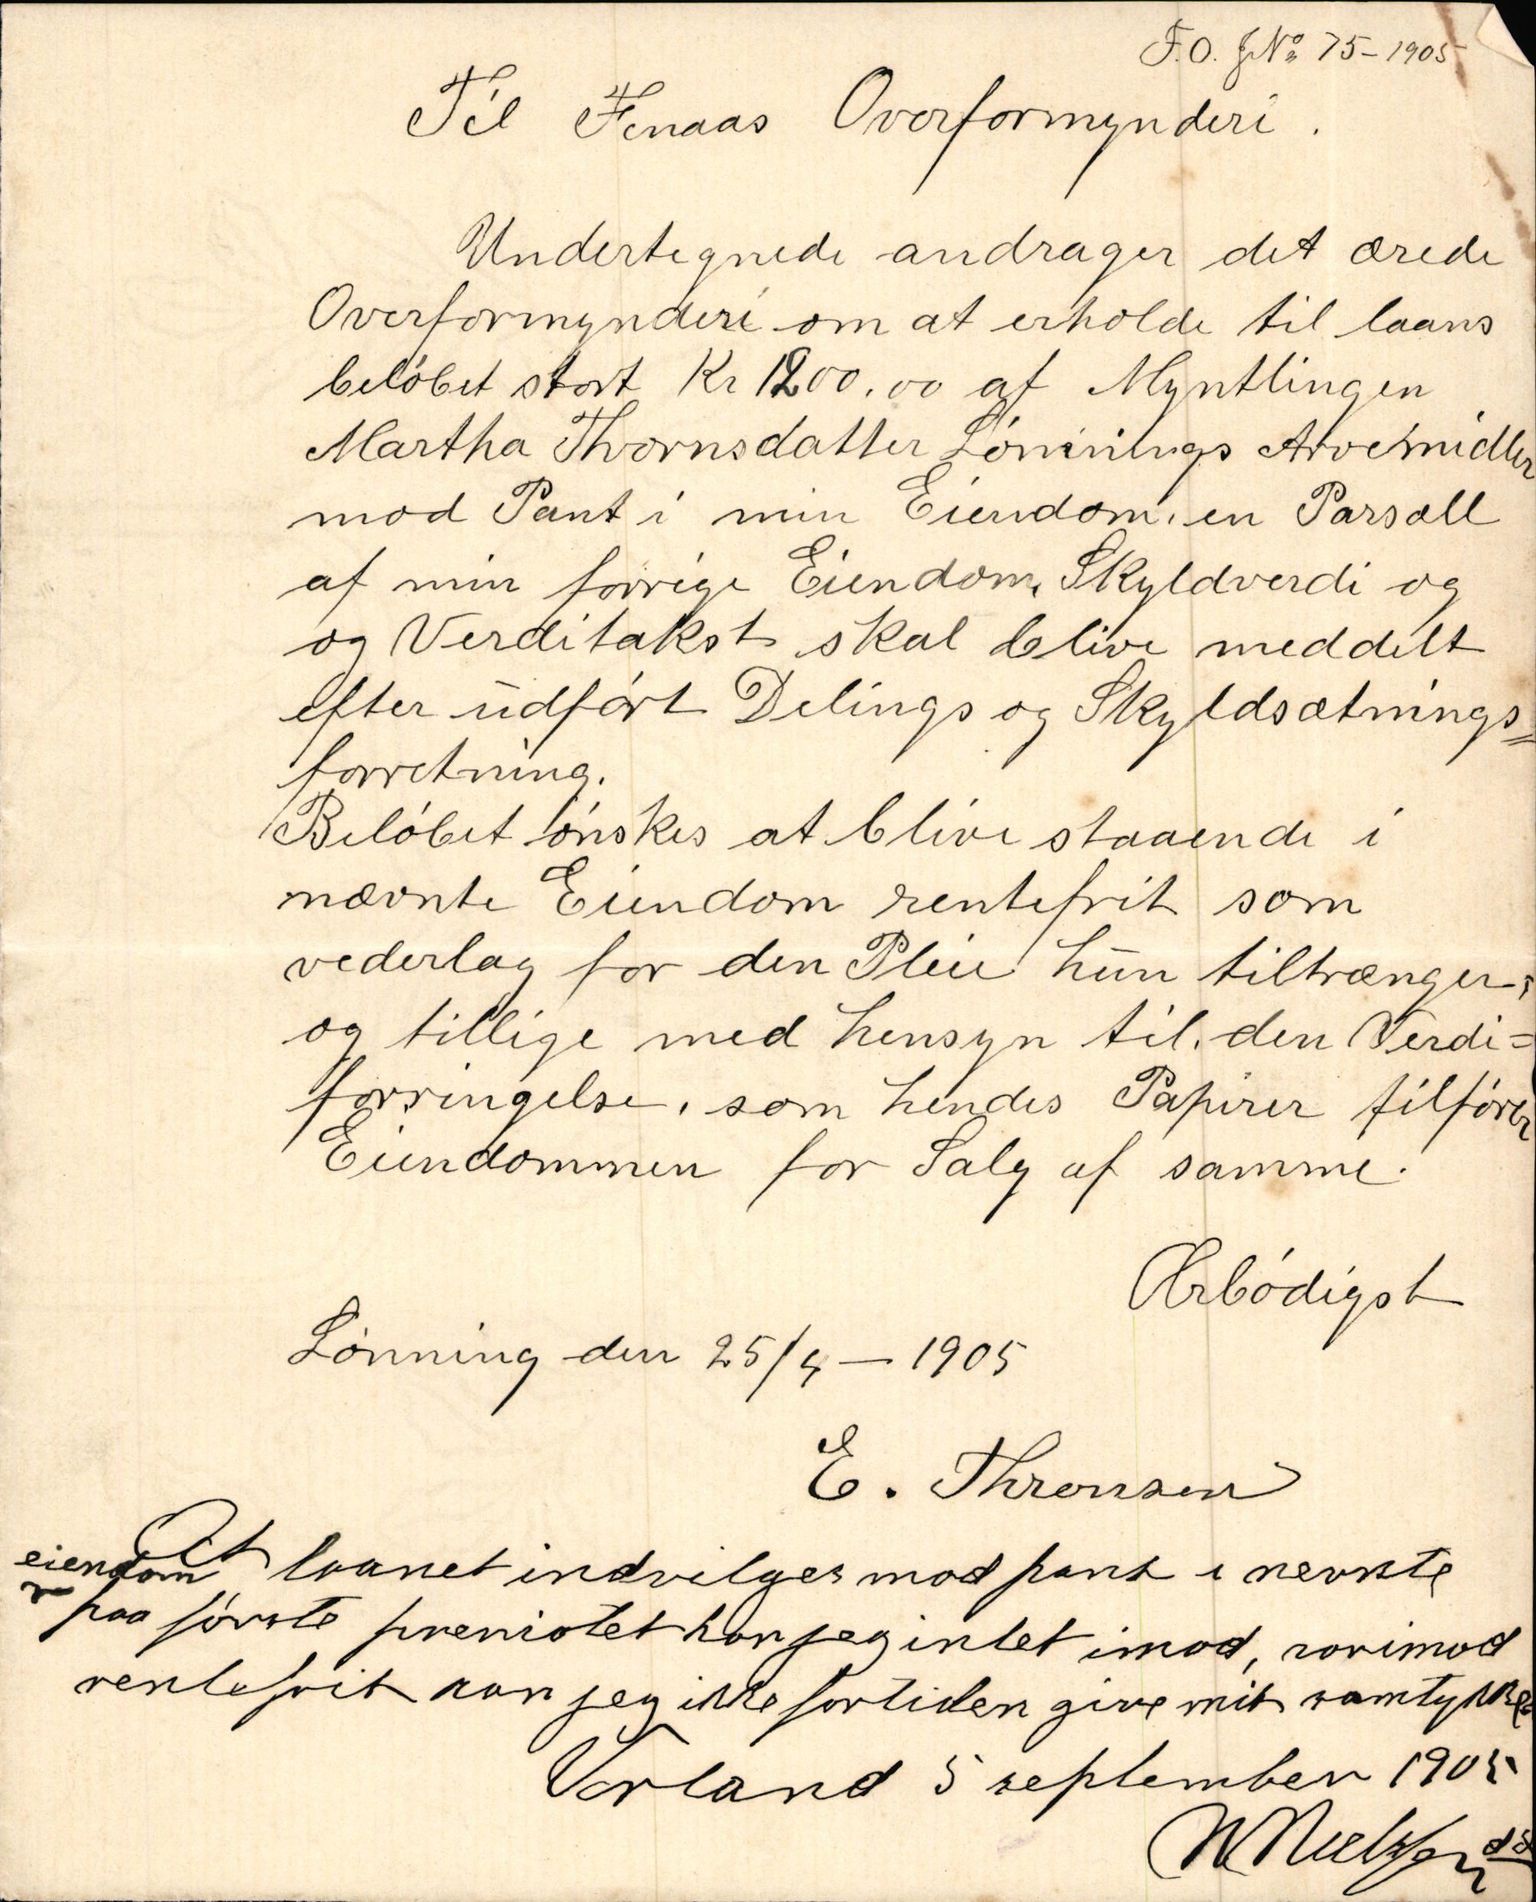 F.O. J№ 75-1905
Til Fenaas Overformynderi.
Undertegnede andrager det ærede
Overformynderi om at erholde til laans
beløbet stort Kr 1200.00 af Myntlingen
Martha Thronsdatter Lønnings Arvemidler
mod Pant i min Eiendom, en Parsell
af min forrige Eiendom, Skyldverdi og
og Verditakst skal blive meddelt
efter udført Delings og Skyldsætnings=
forretning.
Beløbet ønskes at blive staaende i
nævnte Eiendom rentefrit som
vederlag for den Pleie hun tiltrænger,
og tillige med hensyn til den Verdi=
forringelse, som hendes Papirer tilfører
Eiendommen for Salg af samme.
Ærbødigst
Lønning den 25/4 — 1905
E. Thronsen
At laanet indvilges mod pant i nevnte
eiendom
paa første prioritet har jeg intet imod,
rentefrit kan jeg ikke fortiden give mit samtykke
Vorland 5 september 1905
W Nielsen